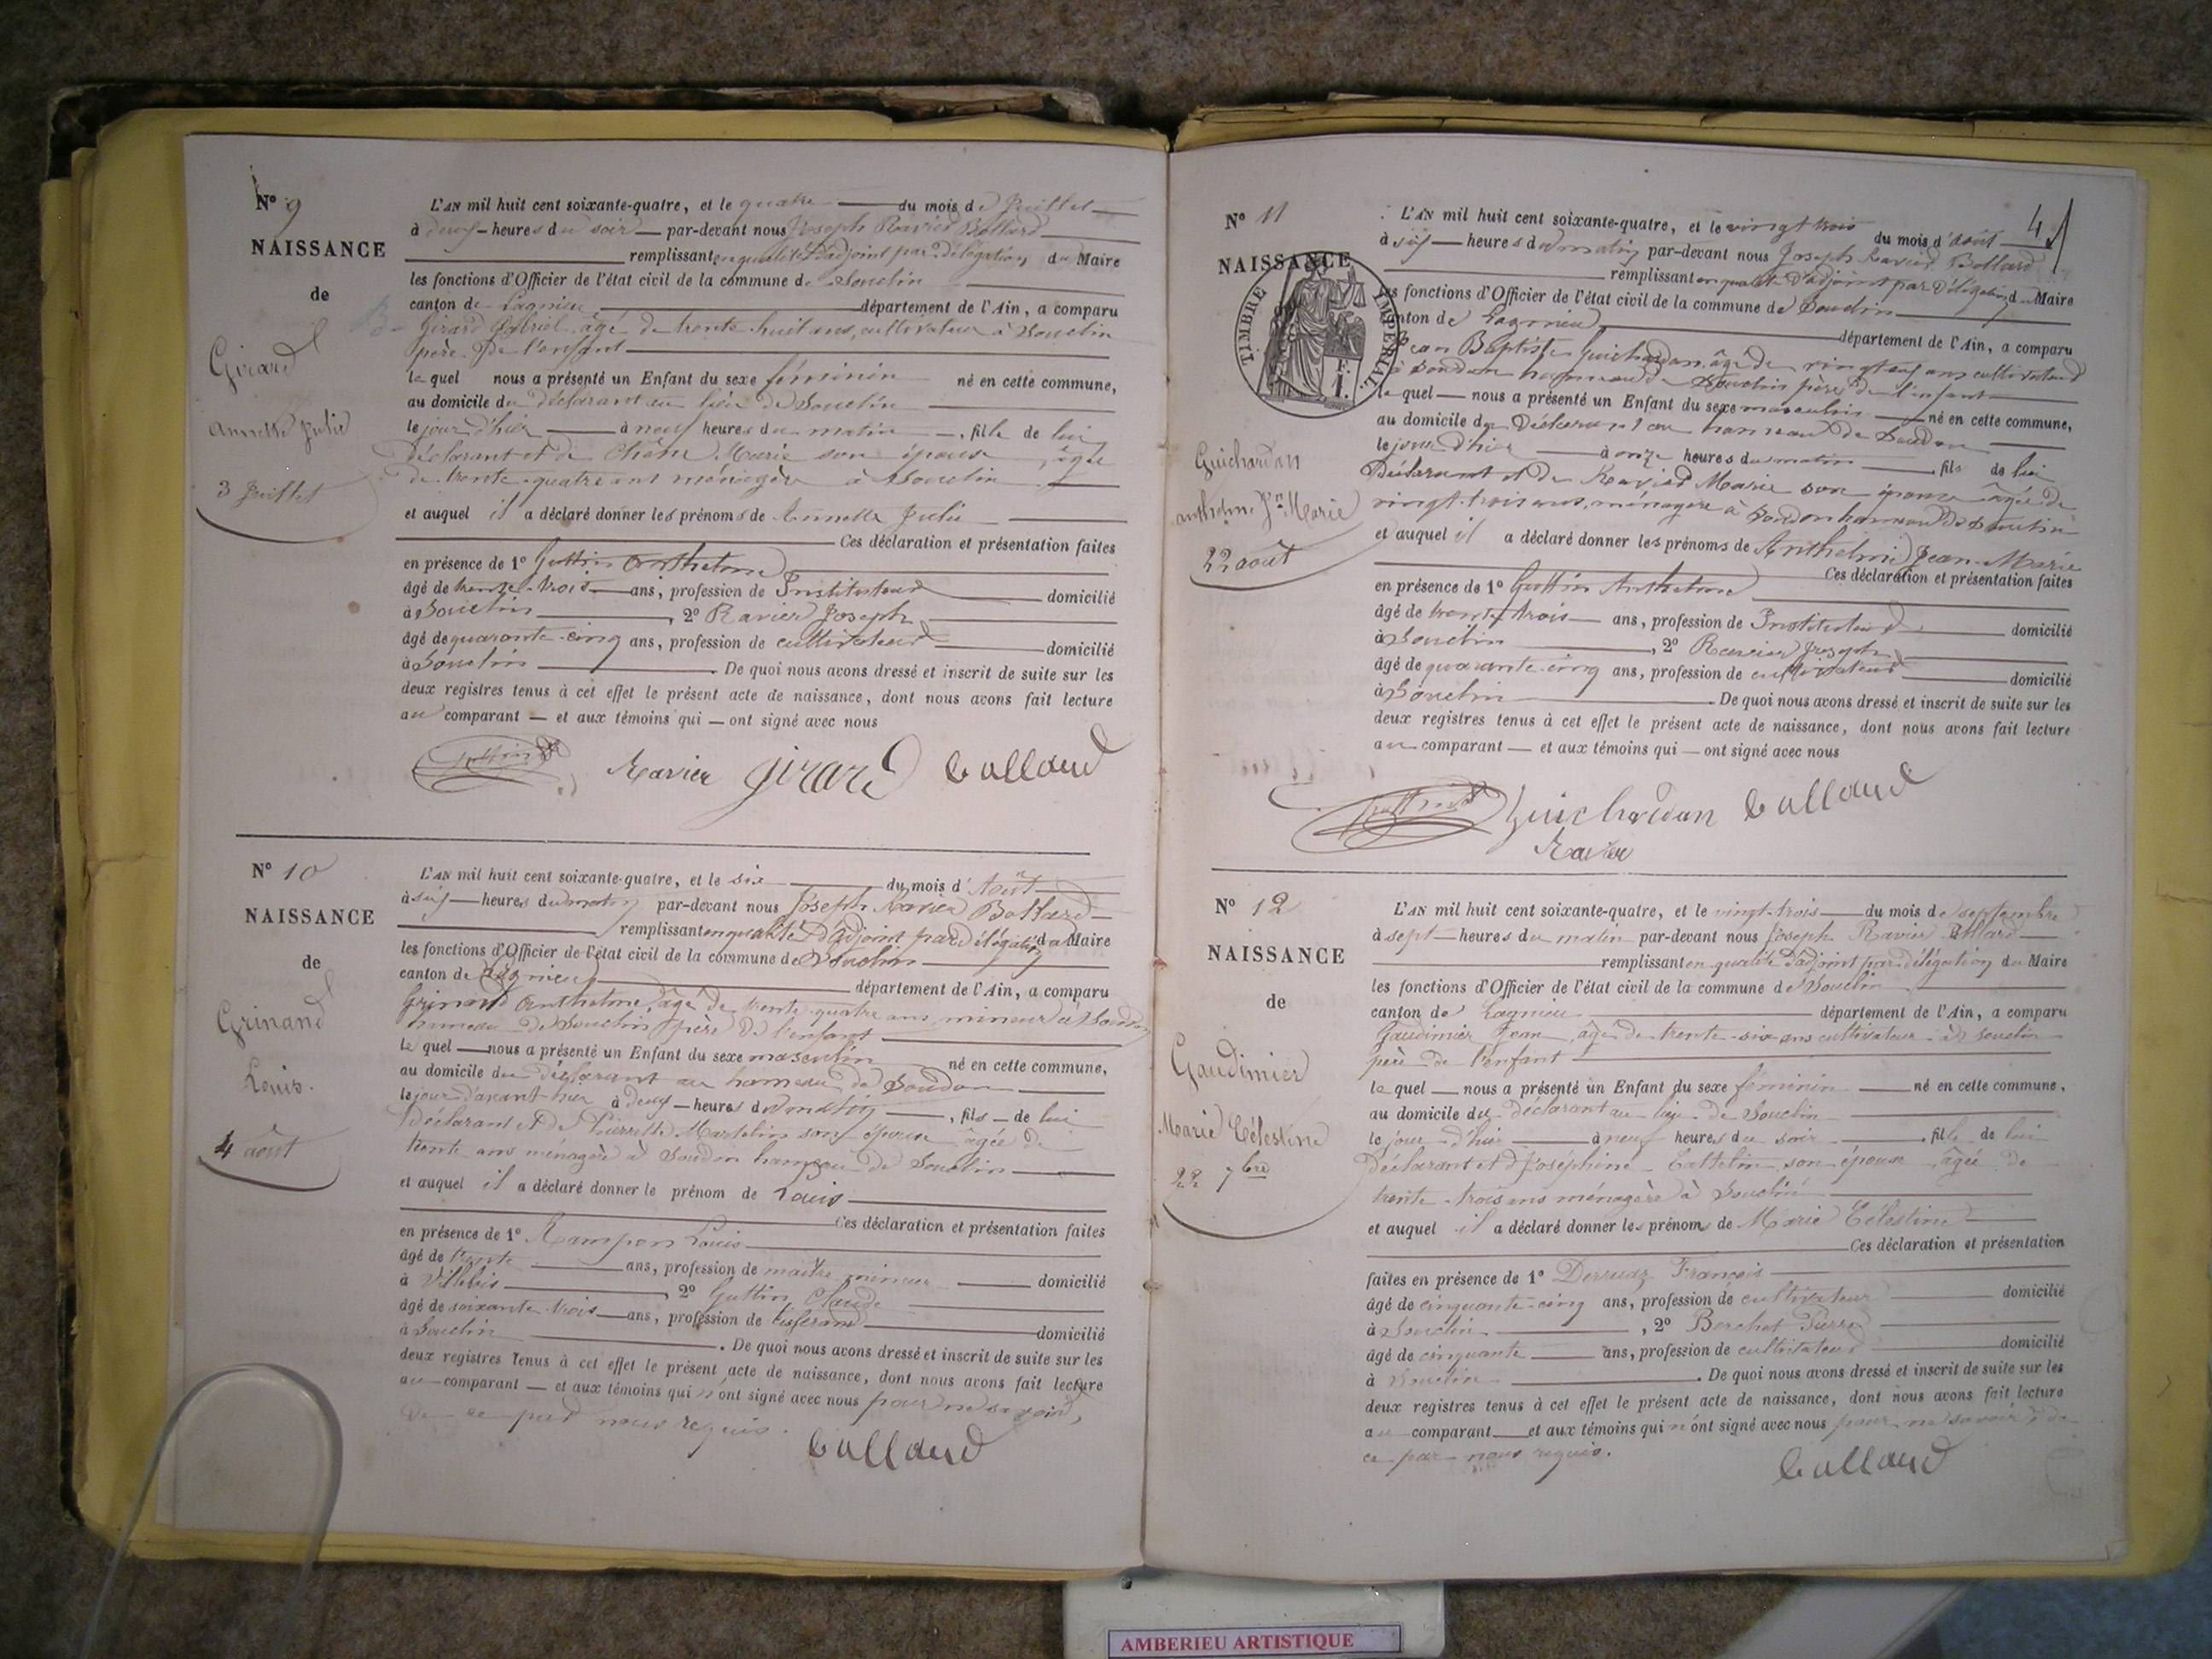 N° 9
NAISSANCE
de
Girard
Annette Julie
3 Juillet
L'AN mil huit cent soixante-quatre, et le quatre du mois de Juillet
à deux heures du soir par-devant nous Joseph Ravier Bollard
remplissant en qualité d'adjoint par délégation du Maire
les fonctions d'Officier de l'état civil de la commune de Souclin
canton de Lagnieu département de l'Ain, a comparu
Girard Gabriel âgé de trente huit ans, cultivateur à Souclin
père de l'enfant
le quel nous a présenté un Enfant du sexe féminin né en cette commune,
au domicile du déclarant au lieu de Souclin
le jour d'hier à neuf heures du matin, fille de lui
déclarant et de Chêne Marie son épouse âgée
de trente-quatre ans ménagère à Souclin
et auquel il a déclaré donner les prénoms de Annette Julie
Ces déclaration et présentation faites
en présence de 1° Guttin Anthelme
âgé de trente-trois ans, profession de Instituteur domicilié
à Souclin, 2° Ravier Joseph
âgé de quarante-cinq ans, profession de cultivateur domicilié
à Souclin De quoi nous avons dressé et inscrit de suite sur les
deux registres tenus à cet effet le présent acte de naissance, dont nous avons fait lecture
au comparant — et aux témoins qui — ont signé avec nous
Guttin Ravier Girard Bollard
N° 10
NAISSANCE
de
Grinand
Louis.
4 août
L'AN mil huit cent soixante-quatre, et le six du mois d'Août
à six heures du matin par-devant nous Joseph Ravier Bollard
remplissant en qualité d'adjoint par délégation du Maire
les fonctions d'Officier de l'état civil de la commune de Souclin
canton de Lagnieu département de l'Ain, a comparu
Grinand Anthelme, âgé de trente-quatre ans mineur à Soudon
hameau de Souclin père de l'enfant
le quel nous a présenté un Enfant du sexe masculin né en cette commune,
au domicile du déclarant au hameau de Soudon
le jour d'avant hier à deux heures du matin, fils de lui
Déclarant et de Pierrette Martelin son épouse âgée de
trente ans ménagère à Soudon hameau de Souclin
et auquel il a déclaré donner le prénom de Louis
Ces déclaration et présentation faites
en présence de 1° Rampon Louis
âgé de trente ans, profession de maître mineur domicilié
à Villebois, 2° Guttin Claude
âgé de soixante-trois ans, profession de tisserand domicilié
à Souclin. De quoi nous avons dressé et inscrit de suite sur les
deux registres tenus à cet effet le présent acte de naissance, dont nous avons fait lecture
au comparant — et aux témoins qui n'ont signé avec nous pour ne savoir,
de ce par nous requis.
Bollard
4
N° 11
NAISSANCE
TIMBRE IMPERIAL
Guichardan
anthelme Jn Marie
22 août
L'AN mil huit cent soixante-quatre, et le vingt trois du mois d'août
à six heures du matin par-devant nous Joseph Ravier Bollard
remplissant en qualité d'adjoint par délégation du Maire
les fonctions d'Officier de l'état civil de la commune de Souclin
canton de Lagnieu département de l'Ain, a comparu
Jean Baptiste Guichardan âgé de vingt ans cultivateur
à Soudon hameau de Souclin père de l'enfant
le quel — nous a présenté un Enfant du sexe masculin né en cette commune,
au domicile du Déclarant au hameau de Soudon
le jour d'hier à onze heures du matin, fils de lui
Déclarant et de Ravier Marie son épouse âgée de
vingt-trois ans, ménagère à Soudon hameau de Souclin
et auquel il a déclaré donner les prénoms de Anthelme Jean-Marie
Ces déclaration et présentation faites
en présence de 1° Guttin Anthelme
âgé de trente-trois ans, profession de Instituteur domicilié
à Souclin, 2° Ravier Joseph
âgé de quarante-cinq ans, profession de cultivateur domicilié
à Souclin. De quoi nous avons dressé et inscrit de suite sur les
deux registres tenus à cet effet le présent acte de naissance, dont nous avons fait lecture
au comparant — et aux témoins qui — ont signé avec nous
Guttin Guichardan Bollard
Ravier
N° 12
NAISSANCE
de
Gaudimier
Marie Célestine
22 7bre
L'AN mil huit cent soixante-quatre, et le vingt-trois du mois de septembre
à sept heures du matin par-devant nous Joseph Ravier Bollard
remplissant en qualité d'adjoint par délégation du Maire
les fonctions d'Officier de l'état civil de la commune de Souclin
canton de Lagnieu département de l'Ain, a comparu
Gaudimier Jean, âgé de trente-six ans cultivateur à Souclin
père de l'enfant
le quel — nous a présenté un Enfant du sexe féminin né en cette commune,
au domicile du déclarant au lieu de Souclin
le jour d'hier à neuf heures du soir, fille de lui
Déclarant et de Joséphine Cattelin son épouse âgée de
trente-trois ans ménagère à Souclin
et auquel il a déclaré donner les prénoms de Marie Célestine
Ces déclaration et présentation
faites en présence de 1° Derruaz François
âgé de cinquante-cinq ans, profession de cultivateur domicilié
à Souclin, 2° Berchet Pierre
âgé de cinquante ans, profession de cultivateur domicilié
à Souclin. De quoi nous avons dressé et inscrit de suite sur les
deux registres tenus à cet effet le présent acte de naissance, dont nous avons fait lecture
au comparant et aux témoins qui n'ont signé avec nous pour ne savoir, de
ce par nous requis.
Bollard
AMBERIEU ARTISTIQUE